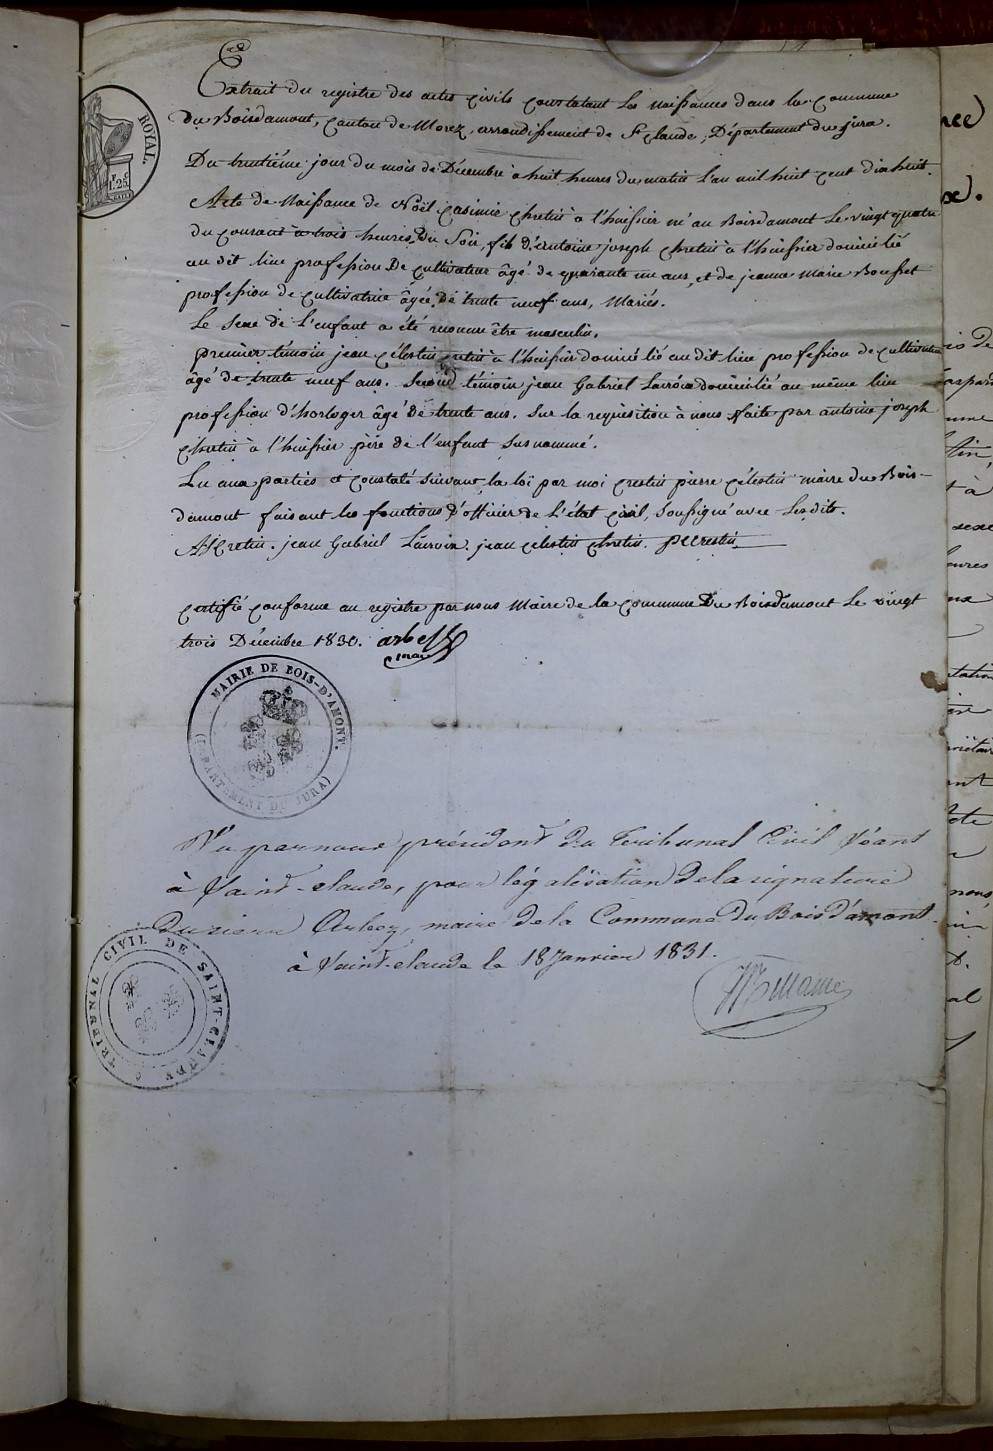 Extrait du registre des actes civils constatant les naissances dans la commune
du Boisdamont, canton de Morez, arrondissement de St claude, Département du jura.
Du trentiéme jour du mois de Décembre à huit heures du matin l'an mil huit cent dix huit.
Acte de Naissance de Noël casimir chretin à l'huissier né au Boisdamont le vingt quatre
du courant à trois heures du soir, fils d'antoine joseph chretin à l'huissier domicilié
au dit lieu profession de cultivateur âgé de quarante un ans, et de jeanne Marie Bousset
profession de cultivatrice âgée de trente neuf ans, Mariés.
Le sexe de l'enfant a été reconnu être masculin.
premier témoin jean célestin cretin à l'huissier domicilié au dit lieu profession de cultivateur
âgé de trente neuf ans. second témoin jean Gabriel Lacroix domicilié au même lieu
profession d'horloger âgé de trente ans. sur la requisition à nous faite par antoine joseph
chretin à l'huissier père de l'enfant susnommé.
Lu aux parties et constaté suivant la loi par moi crestin pierre célestin maire du Bois-
damont faisant les fonctions d'officier de l'état civil, soussigné avec lesdits.
AJ Cretin. jean Gabriel Lacroix. jean celestin chretin. PCcrestin.
certifié conforme au registre par nous Maire de la commune du Boisdamont le vingt
trois Décembre 1830. arbey
maire
MAIRIE DE BOIS-D'AMONT.
(DÉPARTEMENT DU JURA)
Vu par nous président du Tribunal Civil séant
à Saint-claude, pour légalisation de la signature
du sieur Arbey, maire de la Commune du Bois d'amont.
à Saint-claude le 18 Janvier 1831.
TRIBUNAL CIVIL DE SAINT-CLAUDE
ROYAL.
1.F 25.C